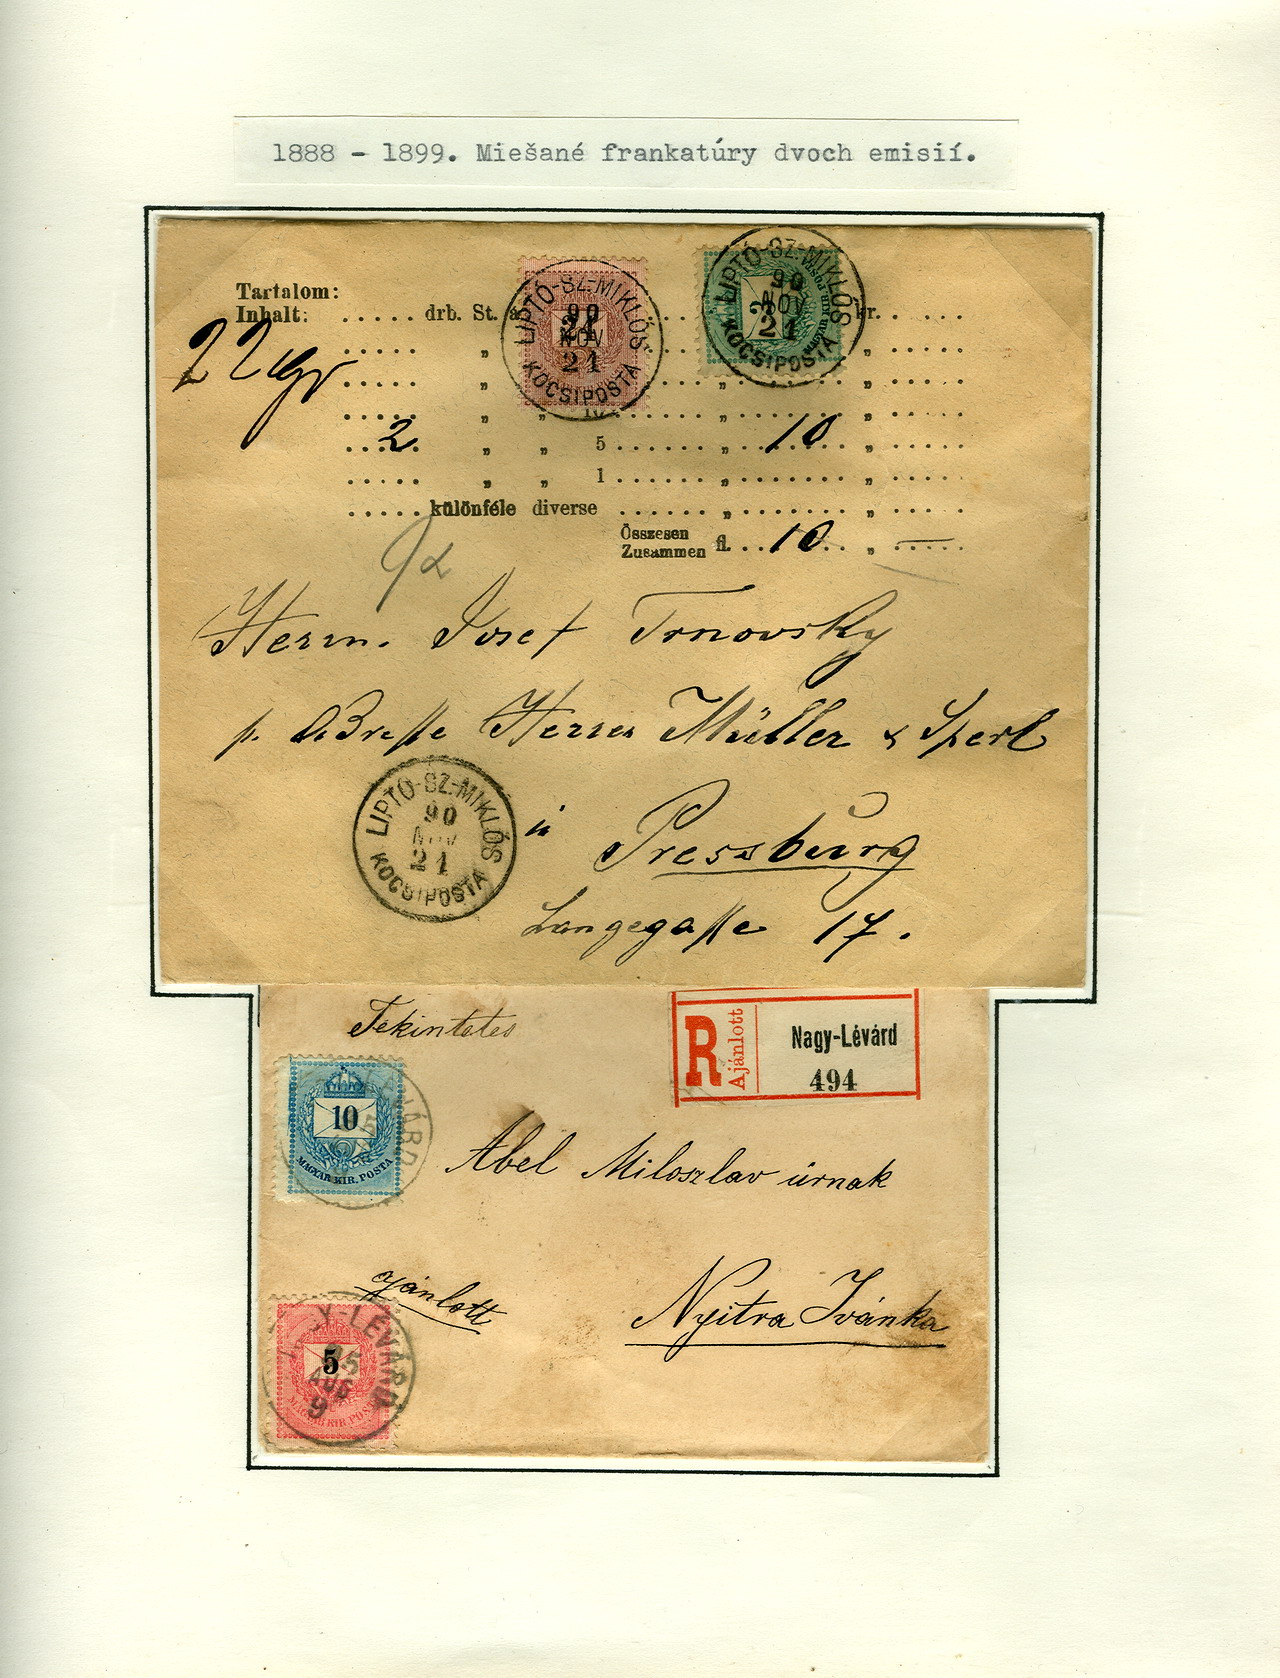 1888 - 1899. Miešané frankatúry dvoch emisií.
Tartalom:
Inhalt: drb. St. á kr.
22 gr
2 " " 5 " 10 "
" " 1 " "
különféle diverse " "
Összesen
Zusammen fl. 10 " —
LIPTÓ-SZ.-MIKLÓS
90
NOV
21
KOCSIPOSTA
LIPTÓ-SZ.-MIKLÓS
90
NOV
21
KOCSIPOSTA
Herrn. Josef Trnovsky
p. Adresse Herren Müller & Sperl
LIPTÓ-SZ.-MIKLÓS
90
NOV
21
KOCSIPOSTA
in Pressburg
Langegasse 17.
Tekintetes
R
Ajánlott
Nagy-Lévárd
494
10
MAGYAR KIR. POSTA
Ábel Miloszlav úrnak
ajánlott
Nyitra Ivánka
NAGY-LÉVÁRD
95
AUG
9
5
MAGYAR KIR. POSTA